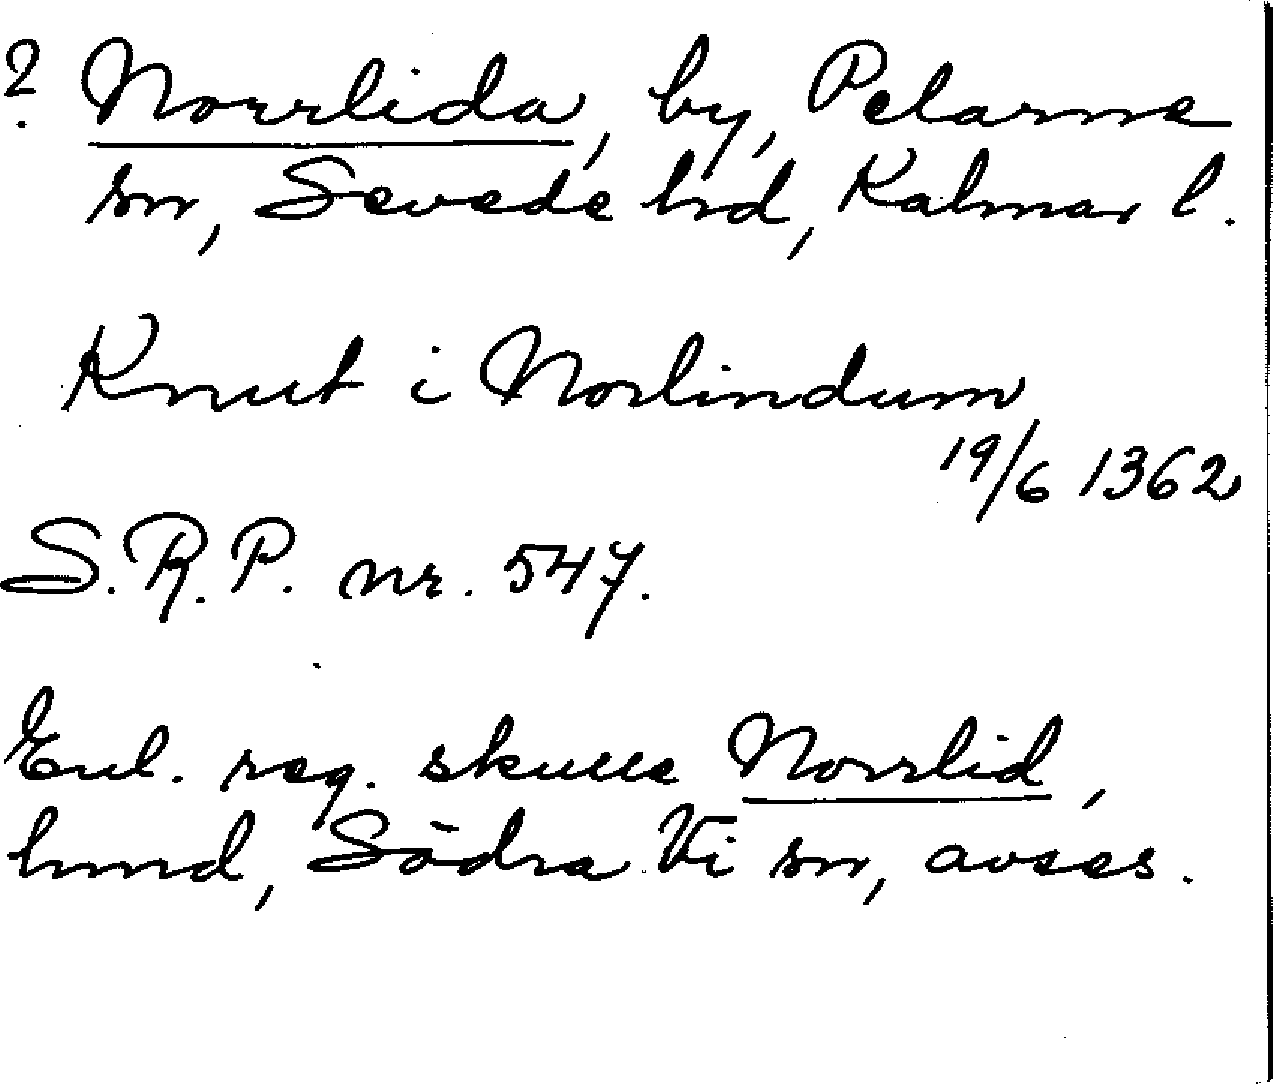 ? Norrlida, by, Pelarne
sn, Sevede hd, Kalmar l.
Knut i Norlindum
19/6 1362
S.R.P. nr. 547.
Enl. reg. skulle Norrlid,
hmd, Södra Vi sn, avses.